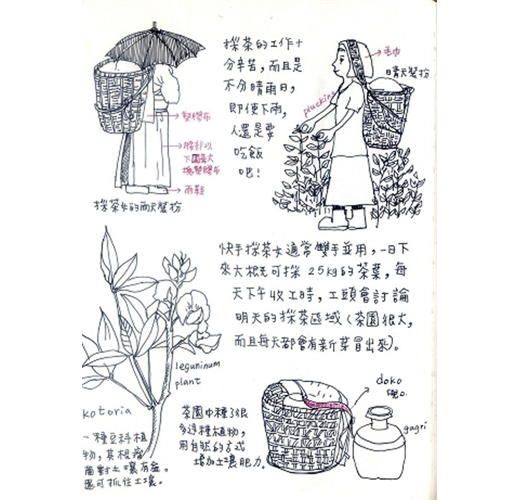 採茶的工作十
分辛苦，而且是
不分晴雨日，
即使下雨，
人還是要
吃飯
吧！
毛巾
晴天裝扮
plucking
塑膠布
腰部以
下圍著大
塊塑膠布
雨鞋
採茶女的雨天裝扮
快手採茶女通常雙手並用，一日下
來大概可採25kg的茶葉，每
天下午收工時，工頭會討論
明天的採茶區域（茶園很大，
而且每天都會有新芽冒出來)。
leguminum
plant
kotoria
一種豆科植
物，其根瘤
菌對土壤有益。
還可抓住土壤。
茶園中種了很
多這種植物，
用自然的方式
增加土壤肥力。
doko
gagri